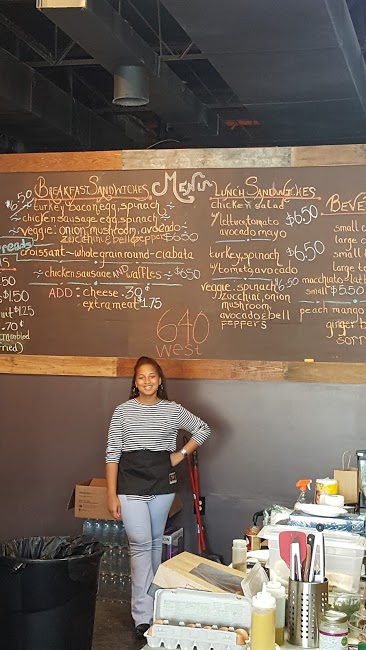 Menu
BREAKFAST SANDWICHES
turkey bacon, egg, spinach
chicken sausage, egg, spinach
veggie: onion, mushroom, avocado
zucchini & bell pepper $6.50
croissant~whole grain round~ciabata
chicken sausage AND waffles $6.50
ADD: cheese .30¢
extra meat $1.75
640
west
LUNCH SANDWICHES
chicken salad
lettuce, tomato $6.50
avocado mayo
turkey, spinach $6.50
tomato avocado
veggie: spinach $6.50
zucchini, onion
mushroom,
avocado & bell
peppers
BEVE
small c
large c
small
large
macchiato~latte
small $5.50
peach mango
ginger b
sorr
reads
$1.50
.70¢